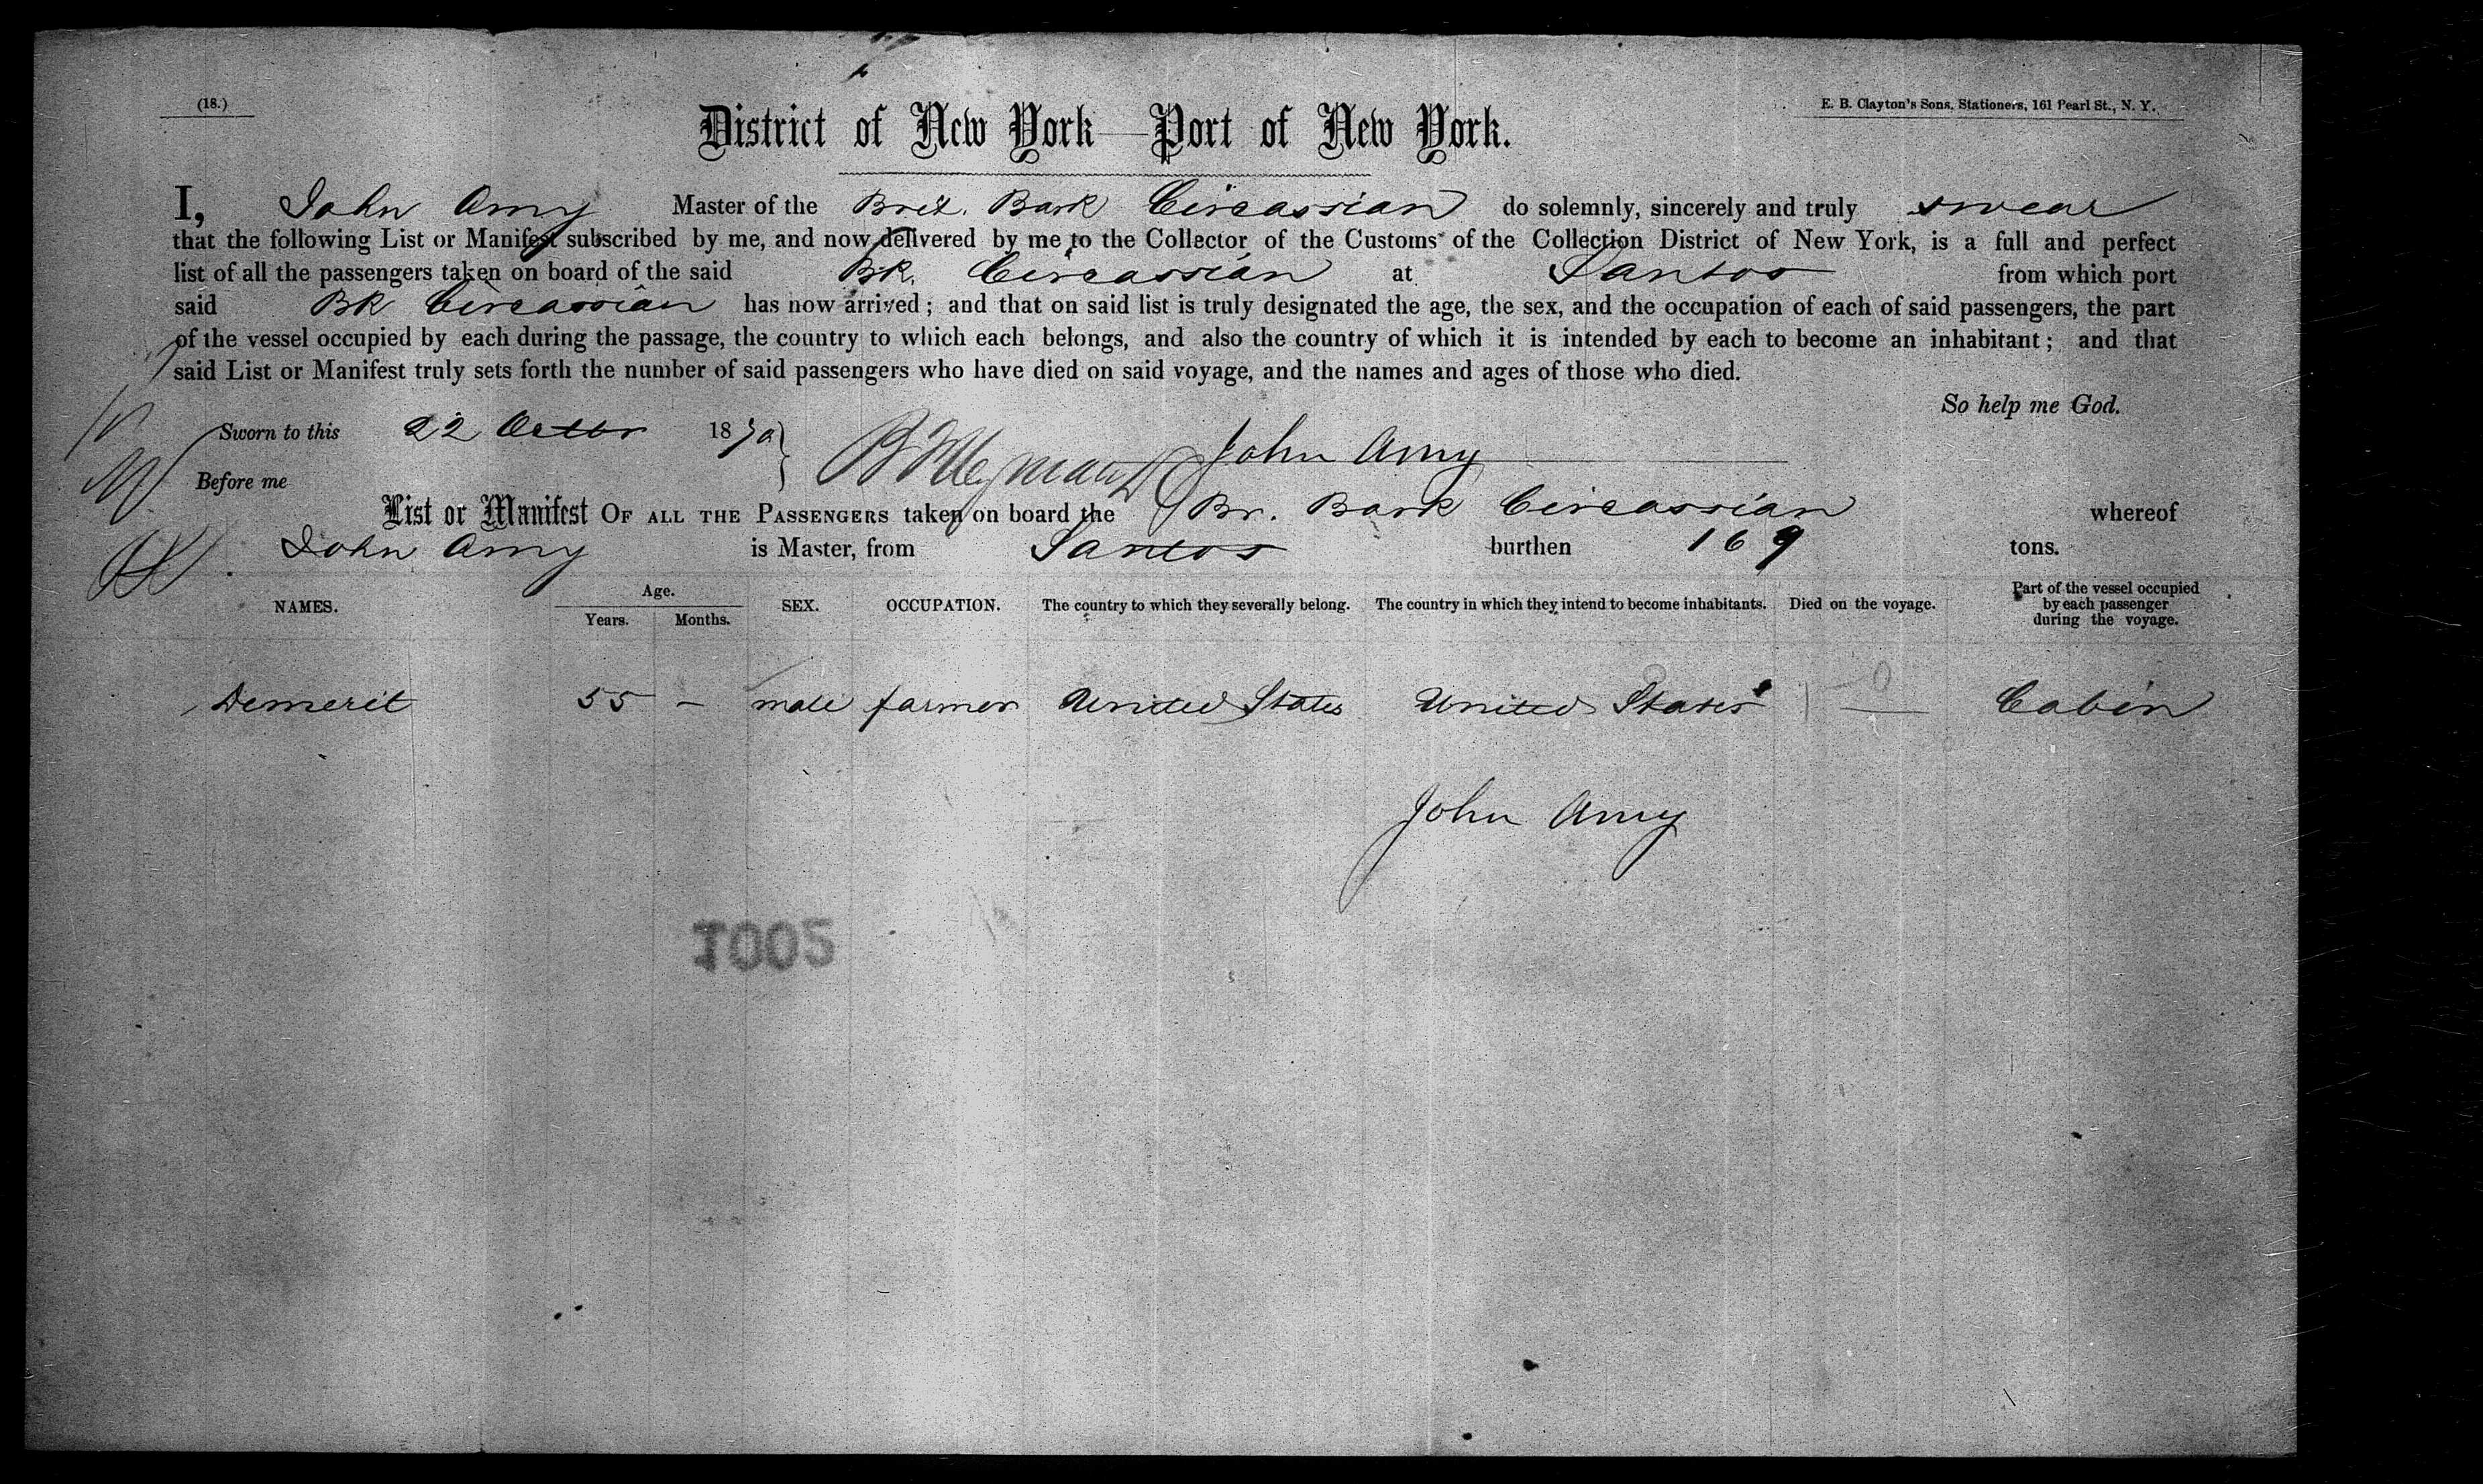 (18.)
E. B. Clayton's Sons, Stationers, 161 Pearl St., N. Y.
District of New York—Port of New York.
I, John Amy Master of the Brit. Bark Circassian do solemnly, sincerely and truly swear
that the following List or Manifest subscribed by me, and now delivered by me to the Collector of the Customs of the Collection District of New York, is a full and perfect
list of all the passengers taken on board of the said Bk. Circassian at Santos from which port
said Bk Circassian has now arrived; and that on said list is truly designated the age, the sex, and the occupation of each of said passengers, the part
of the vessel occupied by each during the passage, the country to which each belongs, and also the country of which it is intended by each to become an inhabitant; and that
said List or Manifest truly sets forth the number of said passengers who have died on said voyage, and the names and ages of those who died.
So help me God.
Sworn to this 22 Octbr 1870 } John Amy
Before me
List or Manifest OF ALL THE PASSENGERS taken on board the Br. Bark Circassian whereof
John Amy is Master, from Santos burthen 169 tons.
NAMES. Age. Years. Months. SEX. OCCUPATION. The country to which they severally belong. The country in which they intend to become inhabitants. Died on the voyage. Part of the vessel occupied by each passenger during the voyage.
Demerit 55 – male farmer United States United States — Cabin
John Amy
1005